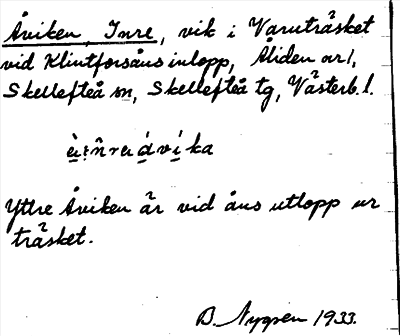 Åviken, Inre, vik i Varuträsket
vid Klintforsåns inlopp, Åliden av1,
Skellefteå sn, Skellefteå tg, Västerb. l.
Yttre Åviken är vid åns utlopp ur
träsket.
B. Nygren 1933.